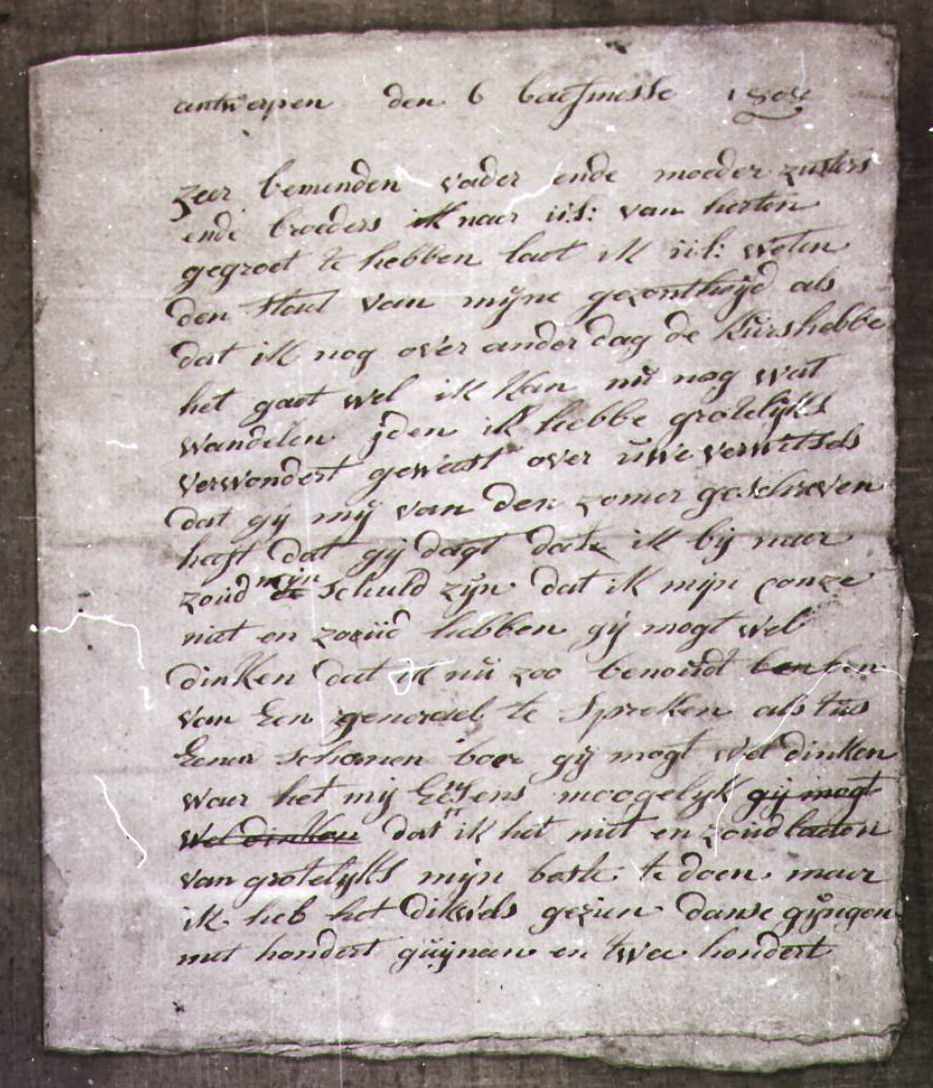 antwerpen den 6 baefmesse 1808
zeer beminden vader ende moeder zusters
ende broeders ik naer ul: van herten
gegroet te hebben laet ik ul: weten
den staet van mijne gezontheijd als
dat ik nog over ander dag de kürs hebbe
het gaet wel ik kan nü nog wat
wandelen jden ik hebbe grotelijks
verwondert geweest over üwe verwitsels
dat gij mij van den zomer geschreven
haft dat gij dagt dat ik bij naer
zoud mijn schuld zijn dat ik mijn conze
niet en zoüd hebben gij mogt wel
dinken dat ik nü zoo benoüdt ben
van Een generael te spreken als tüs
Eenen schamen boer gij mogt wel dinken
waer het mij moogelijk gij mogt
wel dinken dat ik het niet en zoud laeten
van grotelijks mijn beste te doen maer
ik heb het dikwils gezien danse gijngen
met hondert guijnen en twee hondert